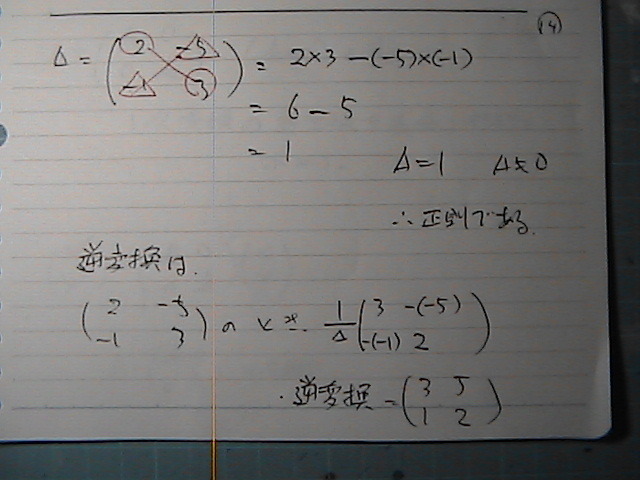 ⑭
Δ = ( 2 -5 = 2×3 -(-5)×(-1)
-1 3 )
= 6 - 5
= 1 Δ=1 Δ≠0
∴ 正則である.
逆変換は.
( 2 -5
-1 3 ) のとき. 1/Δ ( 3 -(-5)
-(-1) 2 )
・逆変換 = ( 3 5
1 2 )